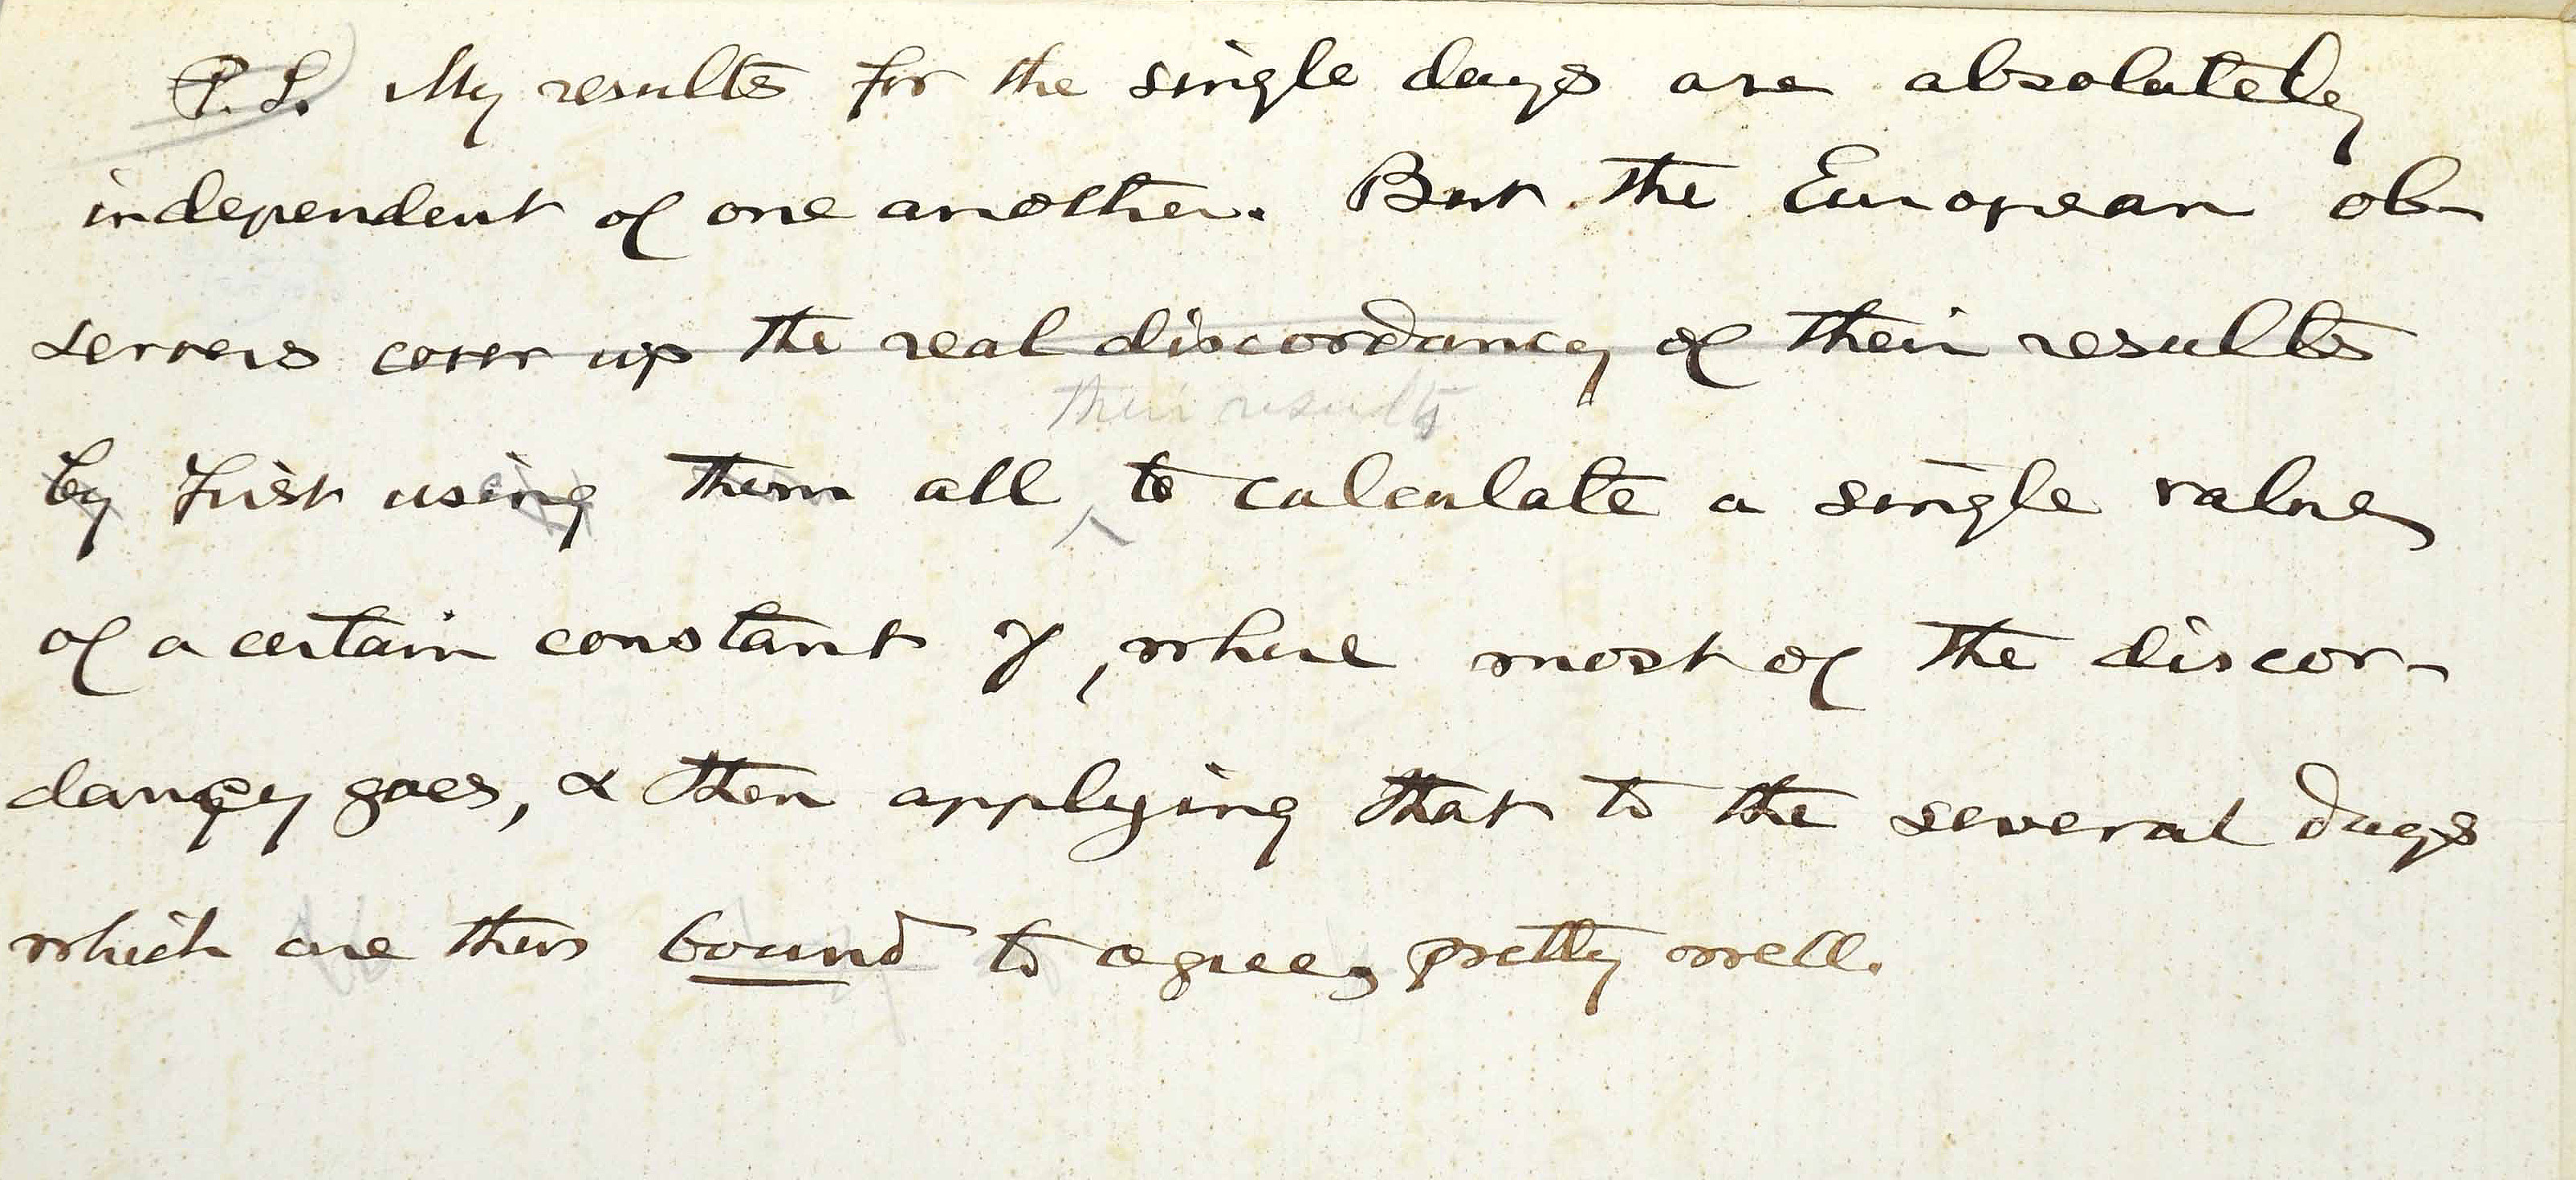 P.S. My results for the single days are absolutely
independent of one another. But the European ob-
servers cover up the real discordancy of their results
their results
by first using them all to calculate a single value
of a certain constant γ, where most of the discor-
dancy goes, & then applying that to the several days
which are thus bound to agree pretty well.